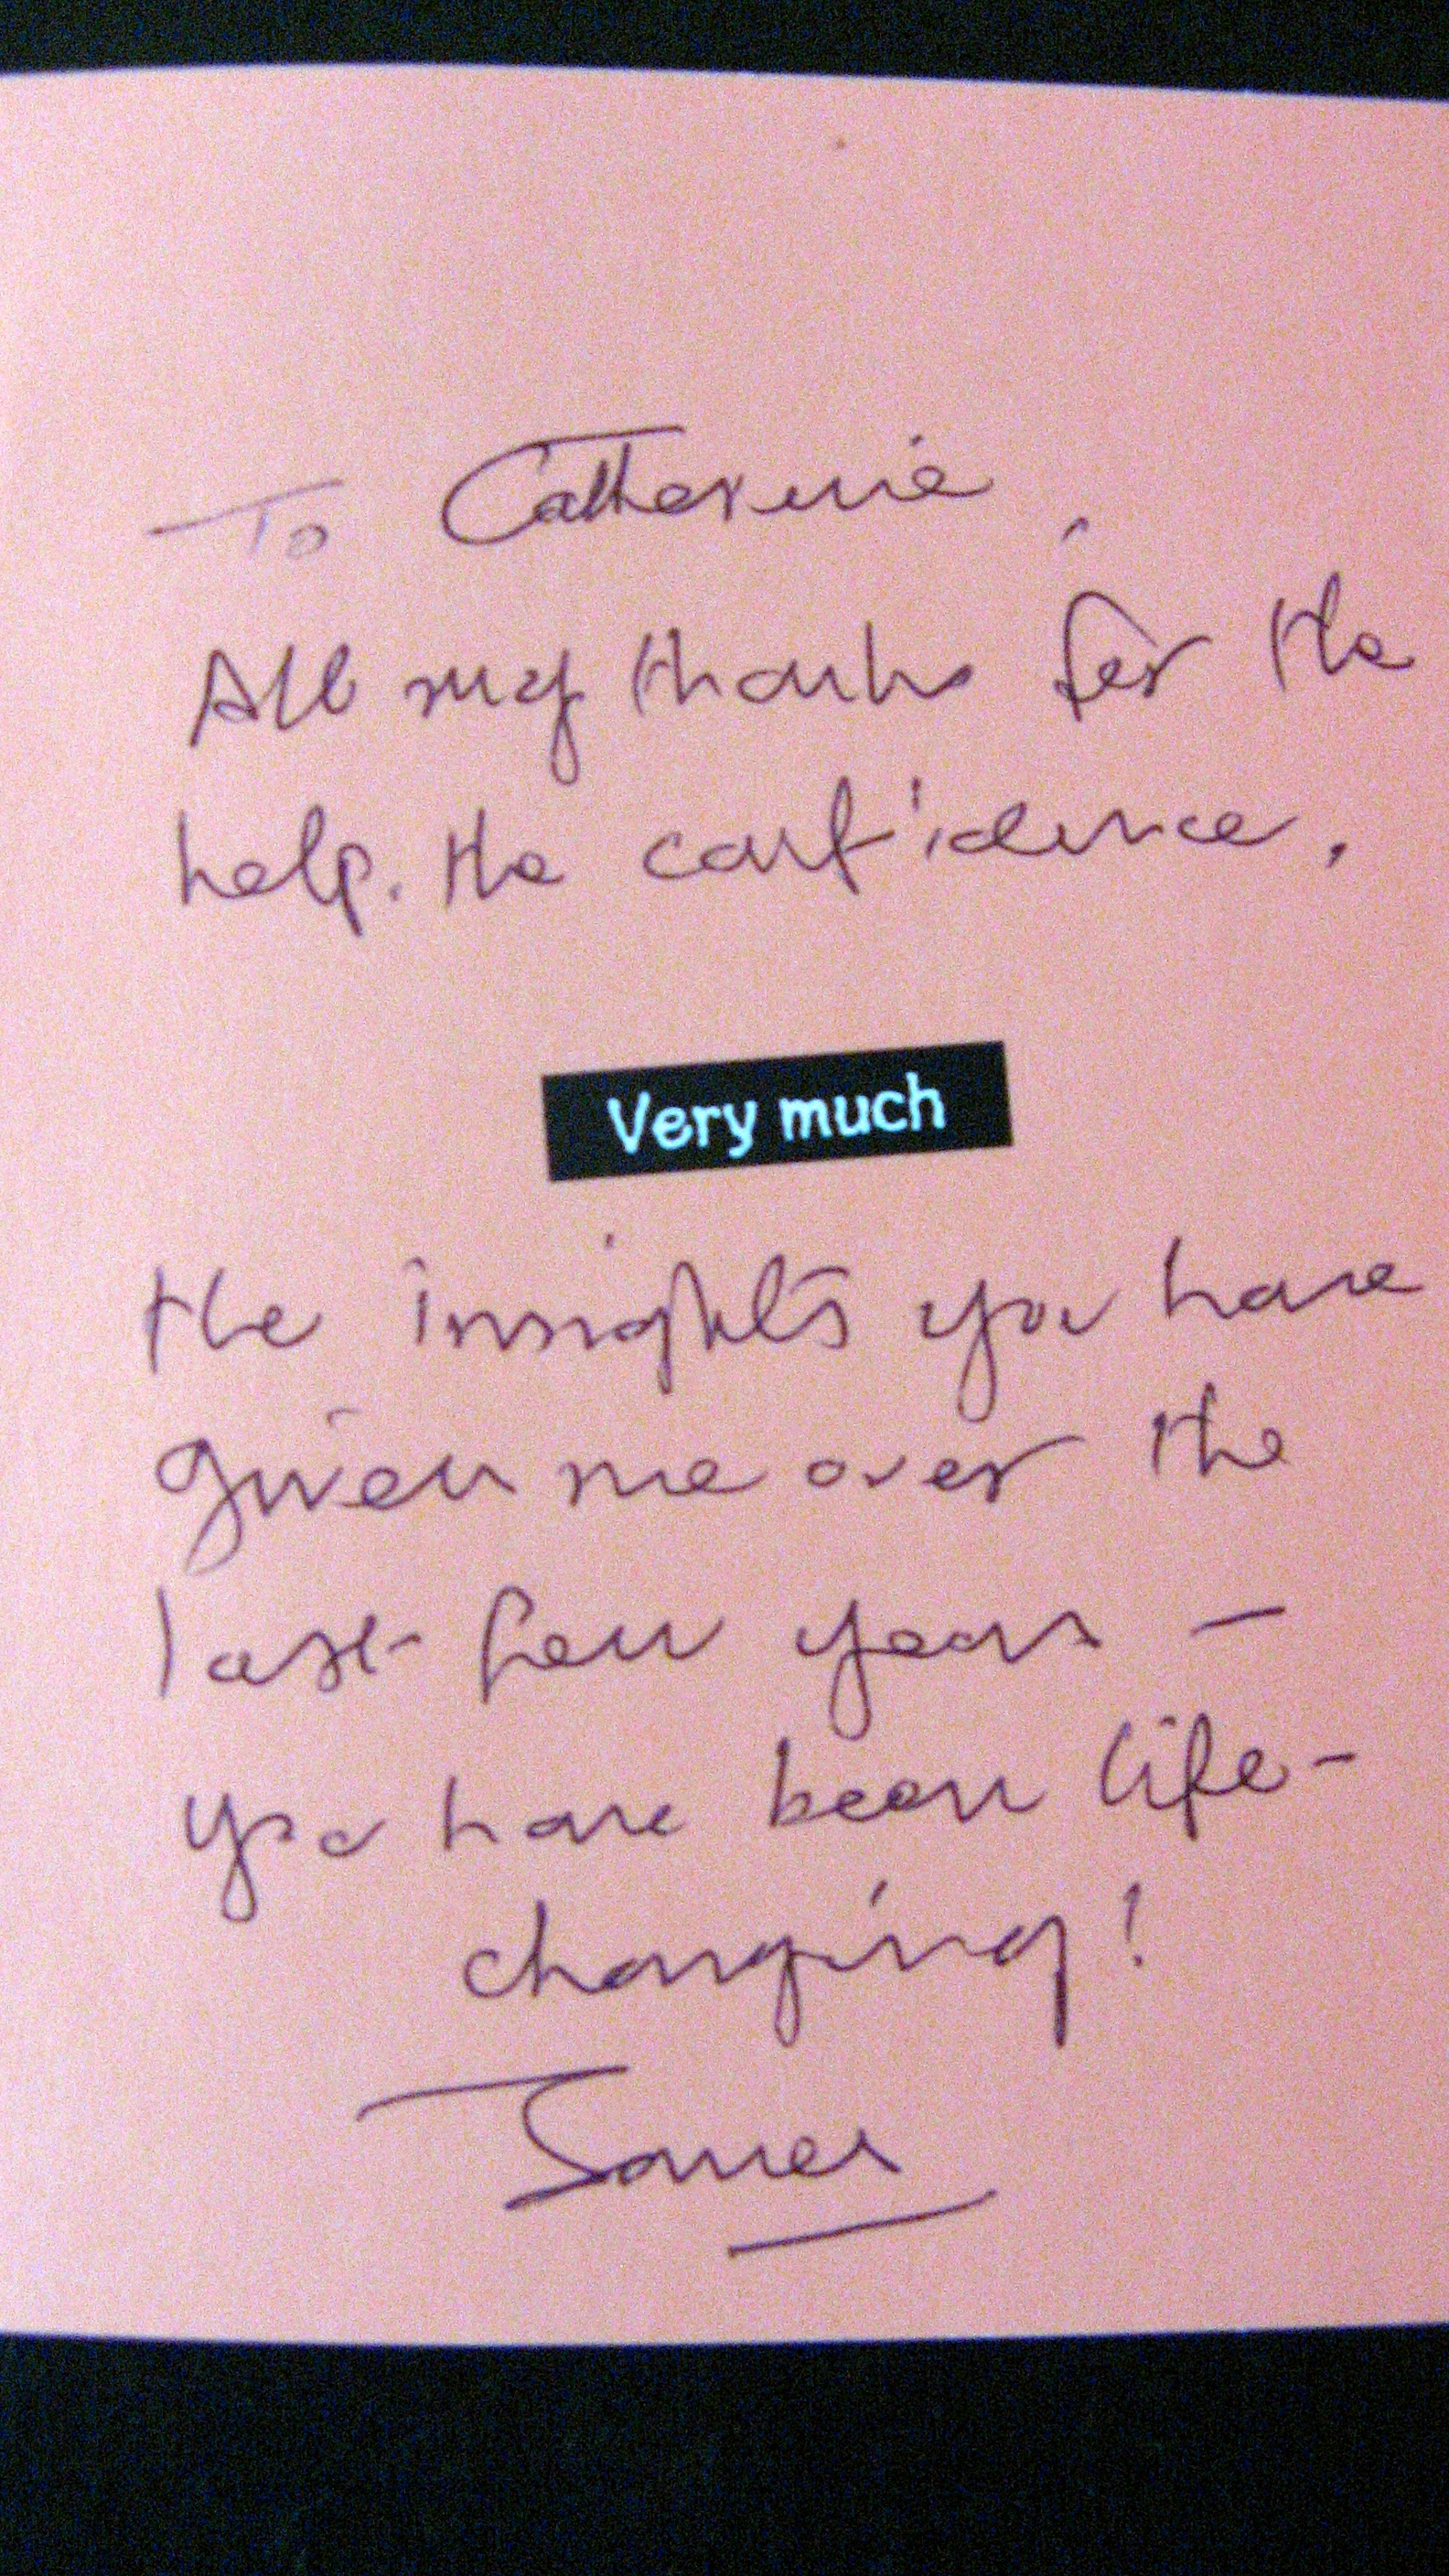 To Catherine,
All my thanks for the
help. the confidence,
Very much
the insights you have
given me over the
last few years —
you have been life-
changing!
James